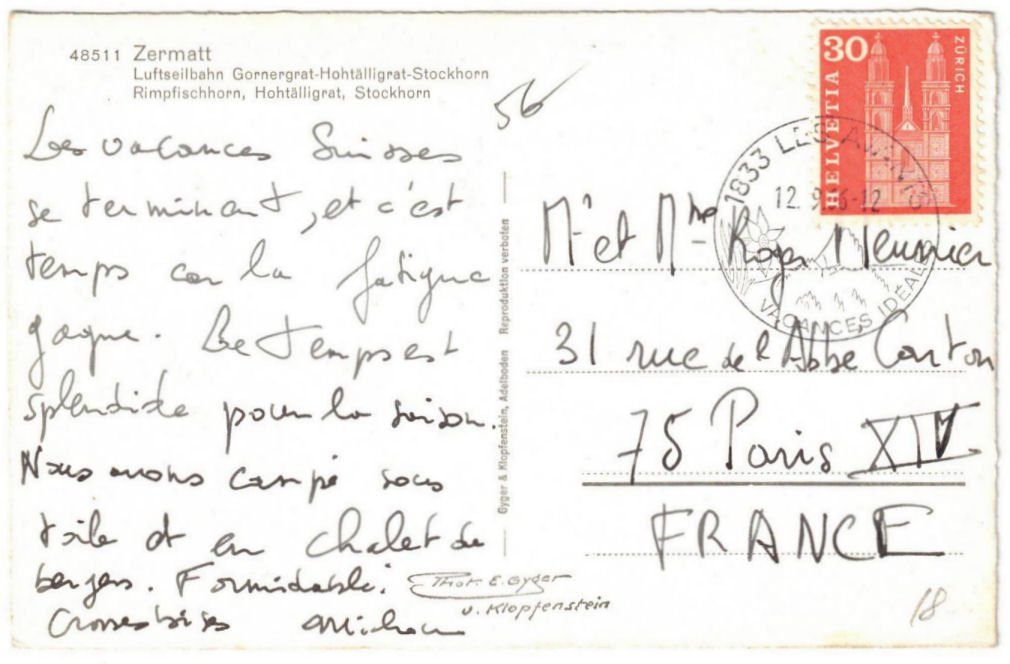 48511 Zermatt
Luftseilbahn Gornergrat-Hohtälligrat-Stockhorn
Rimpfischhorn, Hohtälligrat, Stockhorn
56
Les vacances Suisses
se terminent, et c'est
temps car la fatigue
gagne. Le temps est
splendide pour la saison.
Nous avons campé sous
toile et en chalet de
bergers. Formidable!
Grosses bises
Phot. E. Gyger
u. Klopfenstein
Gyger & Klopfenstein, Adelboden Reproduktion verboten
30
HELVETIA
ZÜRICH
1833 LES AVANTS
12.9.66-12
VACANCES IDÉALES
Mr et Mme Roger Meunier
31 rue de l'Abbe Carton
75 Paris XIV
FRANCE
18